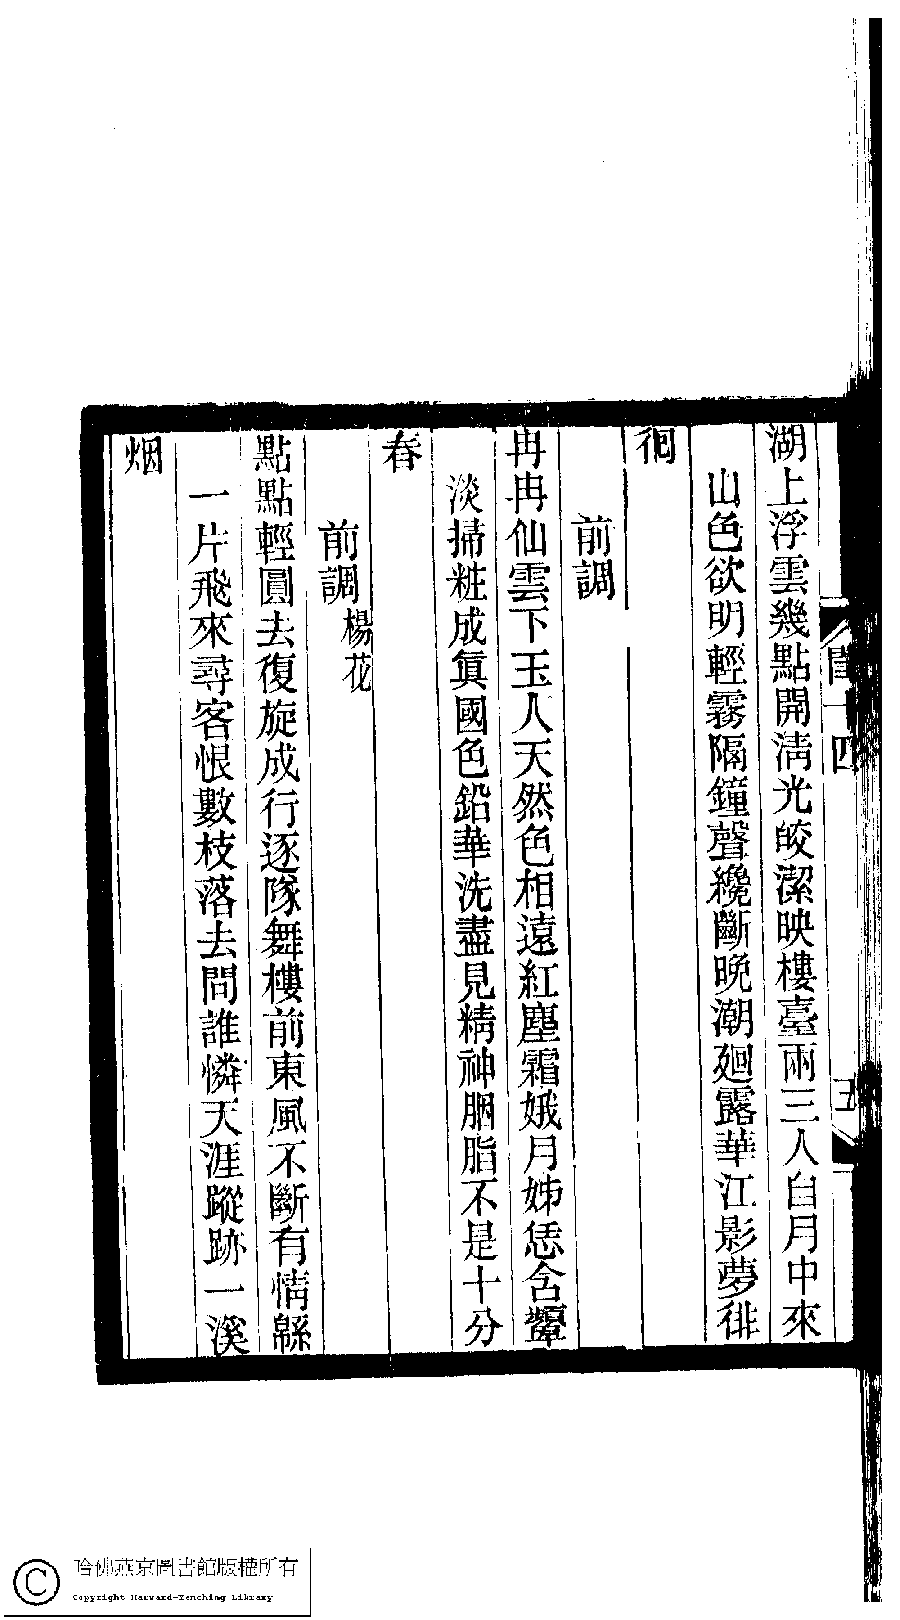 湖上浮雲幾點開淸光皎潔映樓臺兩三人自月中來
山色欲明輕霧隔鐘聲纔斷晚潮廻露華江影夢徘
徊
前調
冉冉仙雲下玉人天然色相遠紅塵霜娥月姊恁含顰
淡掃粧成眞國色鉛華洗盡見精神胭脂不是十分
春
前調楊花
點點輕圓去復旋成行逐隊舞樓前東風不斷有情緜
一片飛來尋客恨數枝落去問誰憐天涯蹤跡一溪
烟
哈佛燕京圖書館版權所有
Copyright Harvard-Yenching Library